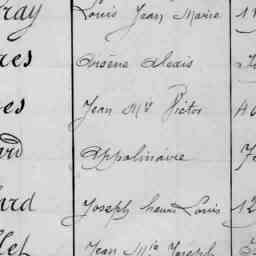 ray Louis Jean Marie 1
res Arsène Alexis
es Jean Mie Victor 40
ard Appolinaire 7
ard Joseph henri Louis 12
llet Jean Mie Joseph